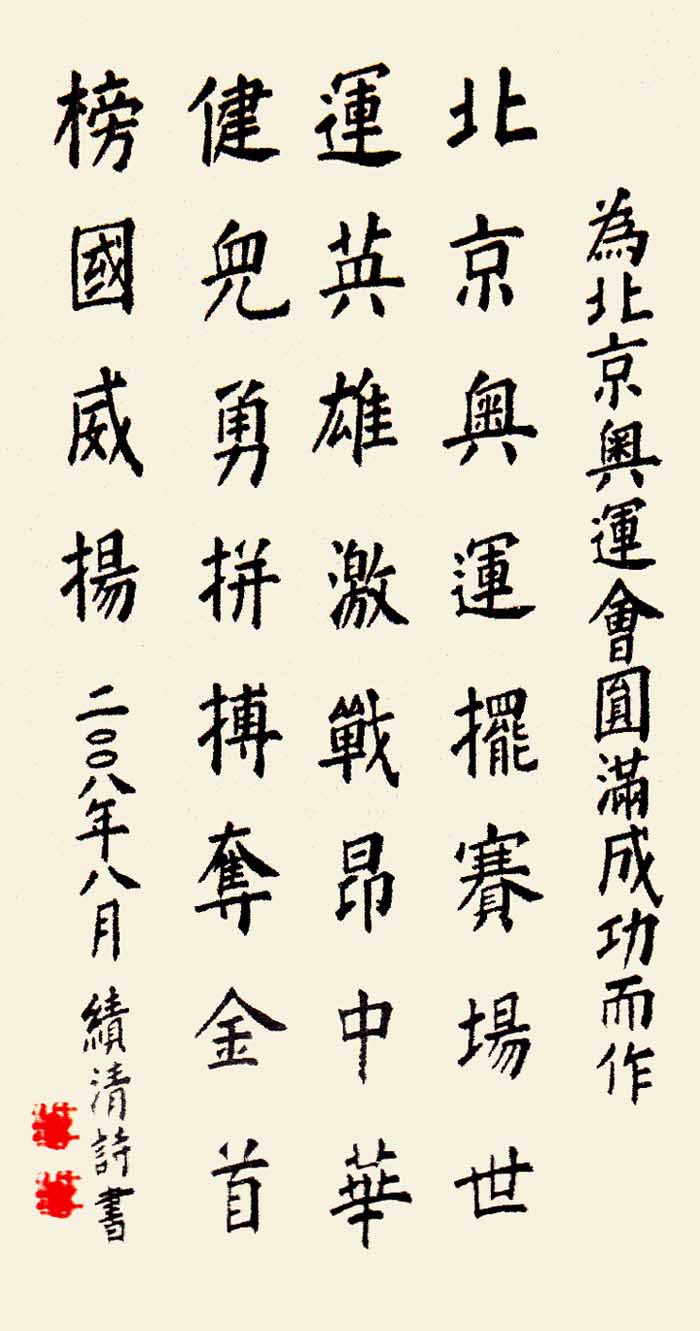 為北京奧運會圓滿成功而作
北京奧運擺賽場世
運英雄激戰昂中華
健兒勇拼搏奪金首
榜國威揚
二〇〇八年八月
績清詩書